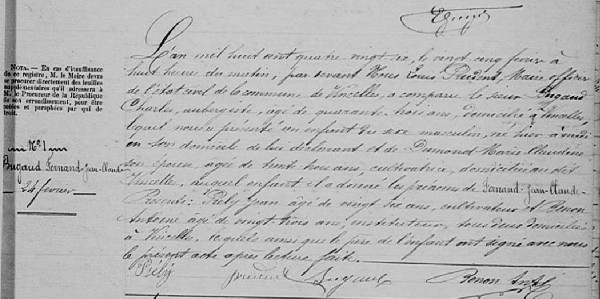 NOTA. — En cas d'insuffisance
de ce registre, M. le Maire devra
se procurer directement des feuilles
supplémentaires qu'il adressera à
M. le Procureur de la République
de son arrondissement, pour être
cotées et paraphées par qui de
droit.
N° 1
Bugaud Fernand-Jean-Claude
24 février
L'an mil huit cent quatre vingt six, le vingt cinq février à
huit heures du matin, par devant Nous Louis Prudent, Maire officier
de l'état civil de la Commune de Vincelles, a comparu le sieur Bugaud
Charles, aubergiste, âgé de quarante trois ans, domicilié à Vincelles,
lequel nous a présenté un enfant du sexe masculin, né hier à midi
en son domicile de lui déclarant et de Dumond Marie Claudine
son épouse, âgée de trente trois ans, cultivatrice, domiciliée au dit
Vincelles, auquel enfant il a donné les prénoms de Fernand-Jean-Claude
Présents: Piély Jean âgé de vingt huit ans, cultivateur et Benon
Antoine âgé de vingt trois ans, instituteur, tous deux domiciliés
à Vincelles, lesquels ainsi que le père de l'enfant ont signé avec nous
le présent acte après lecture faite.
Piély Prudent Bugaud Benon Ant